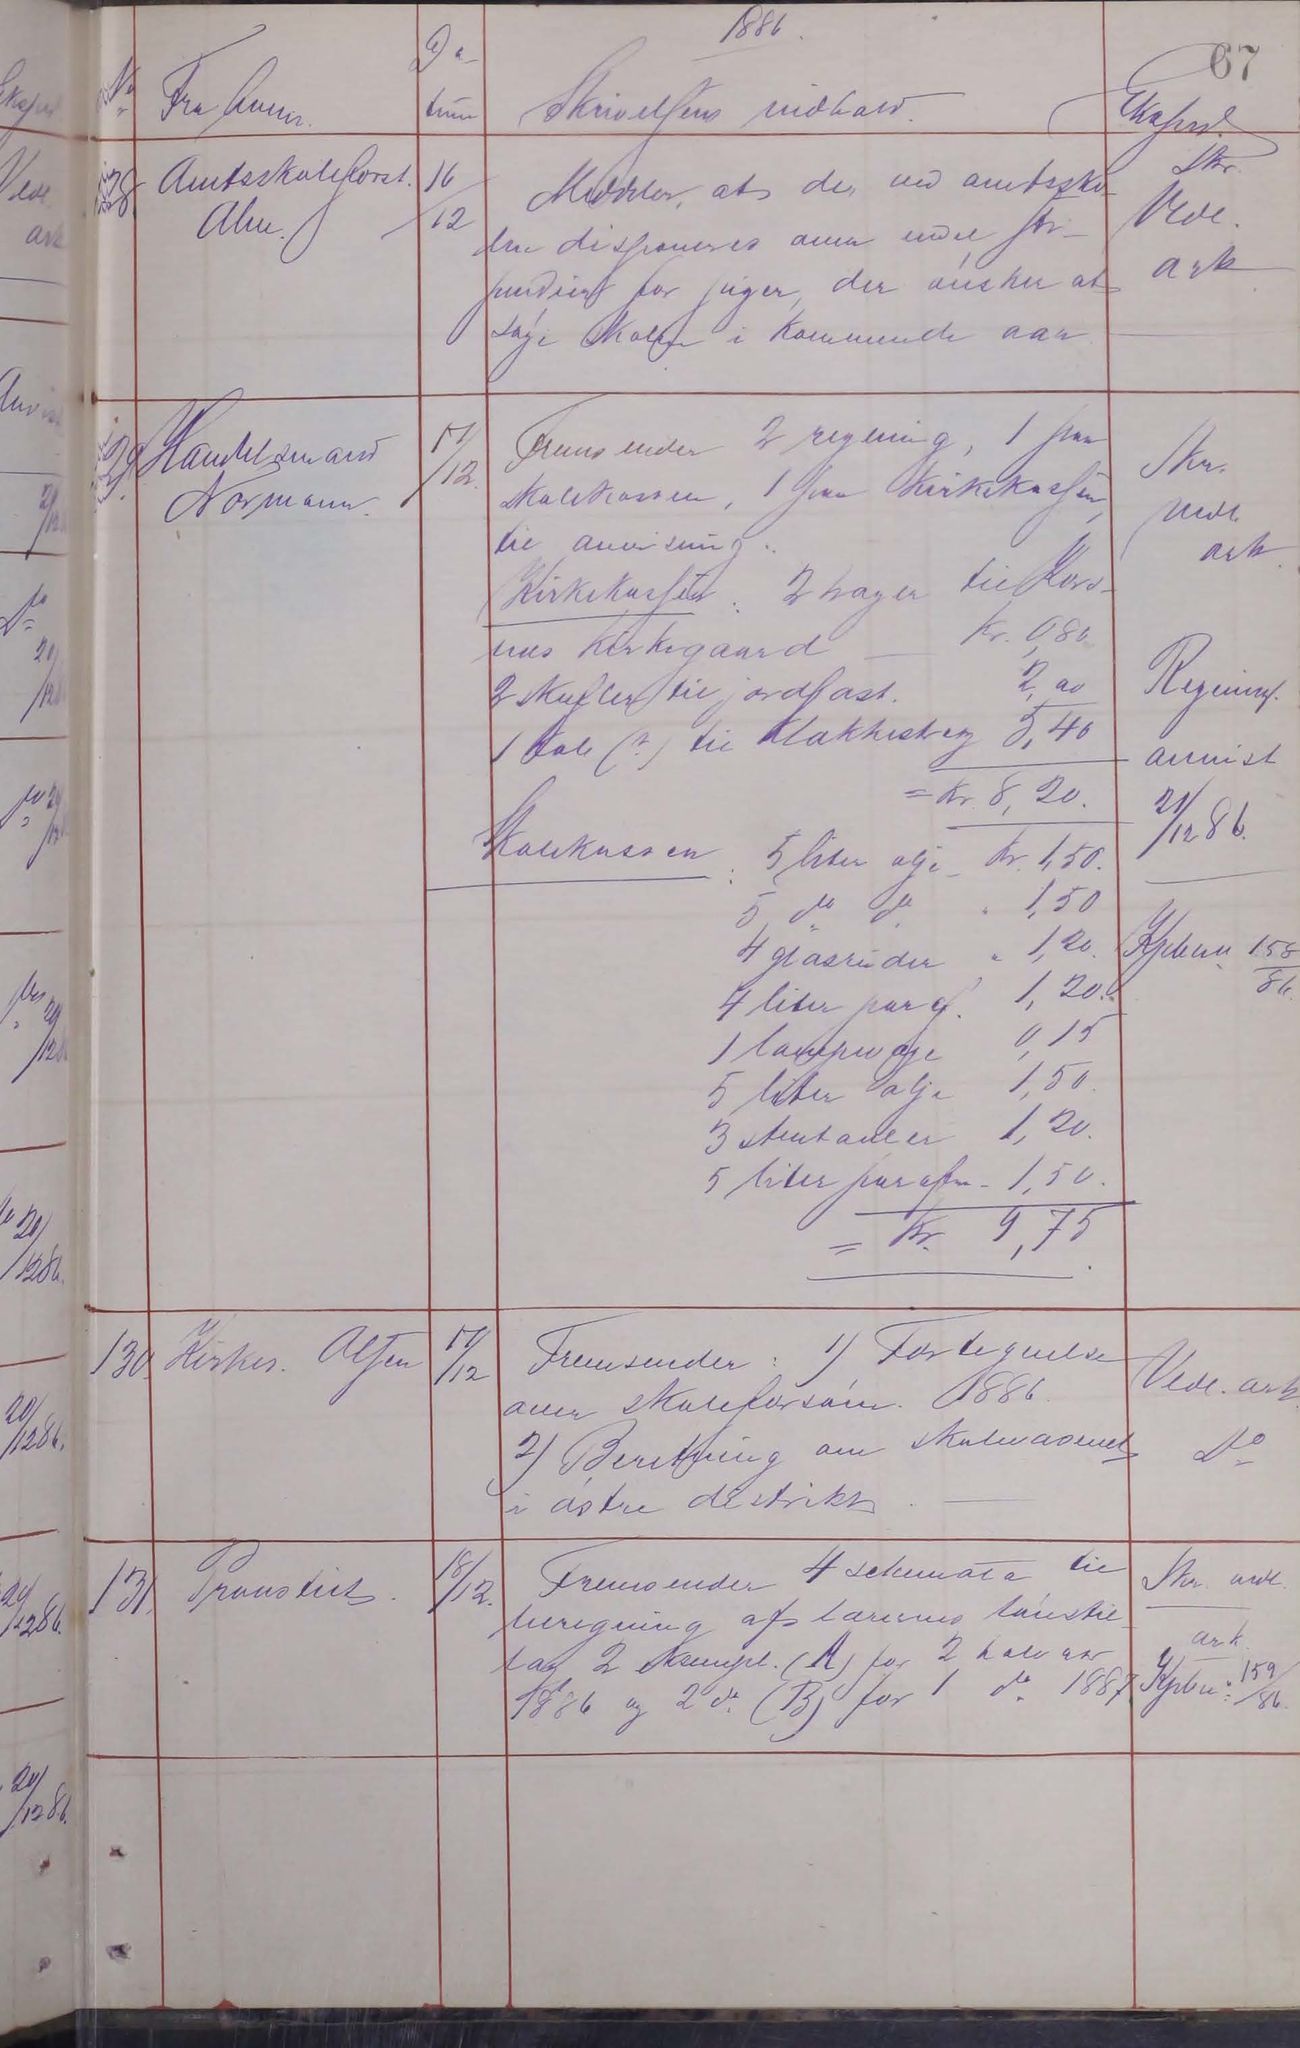 1886.
67
No
Fra hvem.
Da-
tum
Skrivelsens indhold.
Ekspd.
128
Amtsskolebest.
Alm.
16/12
Meddeler, at der ved amtssko-
len disponeres over endel sti-
pendier for piger, der ønsker at
søge skolen i kommende aar
Skr.
Vedl.
ark
129.
Handelsmand
Normann.
17/12.
Fremsender 2 regning, 1 paa
skolekassen, 1 paa Kirkekassen,
til anvisning.
Kirkekassen: 2 hager til Kors-
nes Kirkegaard — Kr. 0,80
2 skufler til jordfast. 2,00
1 tole (?) til Klokkestreng 5,40
= Kr. 8,20.
Skr.
vedl.
ark.
Regning.
anvist
21/12 86.
Skolekassen: 5 liter olje - Kr. 1,50.
5 do do " 1,50
4 glasruder " 1,20.
4 liter paraf. 1,20.
1 lampevæge 0,15
5 liter olje 1,50.
3 1,20.
5 liter parafin - 1,50.
= Kr. 9,75.
Kpbn 158/86.
130.
Kirkes. Olsen
17/12
Fremsender: 1) Fortegnelse
over skoleforsøm. 1886.
2) Beretning om skolevæsenet
i østre distrikt.
Vedl. ark
Do
131.
Pronstiet.
18/12.
Fremsender 4 schemata til
beregning af lærernes lønstil-
læg 2 Exempl. (A) for 2 halvaar
1886 og 2 do (B) for 1 do 1887.
Skr. vedl.
ark.
Kpbn: 159/86.
20/1286.
20/1286.
20/1286.
20/1286.